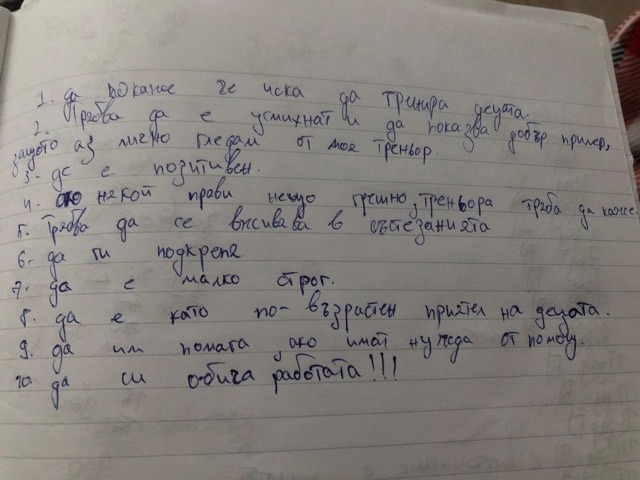 1. да покаже че иска да тренира децата
2. Трябва да е усмихнат и да показва добър пример,
защото аз лично гледам от моя треньор.
3. да е позитивен.
4. ако някой прави нещо грешно, треньора тряба да каже
5. Трябва да се вживява в състезанията
6. да ги подкрепя
7. да е малко строг.
8. да е като по-възрастен приятел на децата.
9. да им помага, ако имат нужда от помощ.
10 да си обича работата!!!